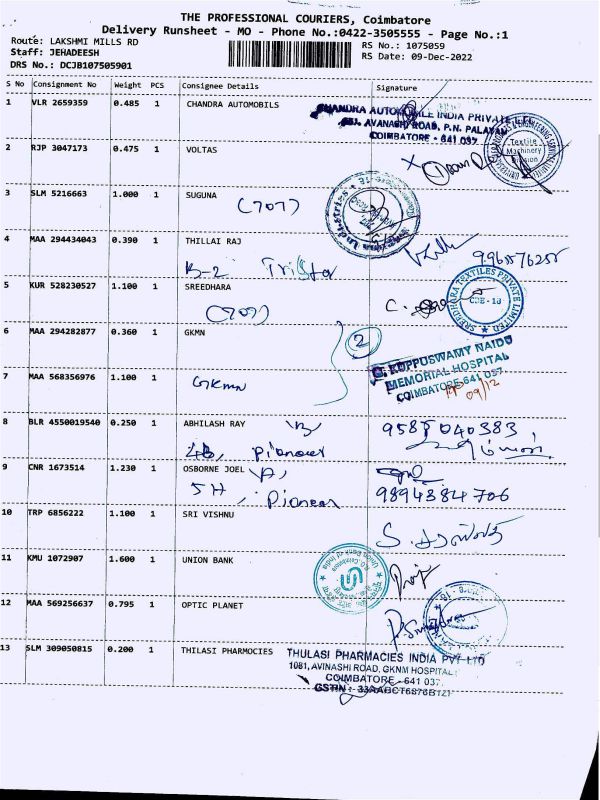 THE PROFESSIONAL COURIERS, Coimbatore
Delivery Runsheet - MO - Phone No.:0422-3505555 - Page No.:1
Route: LAKSHMI MILLS RD
RS No.: 1075059
Staff: JEHADEESH
RS Date: 09-Dec-2022
DRS No.: DCJB107505901
S No Consignment No Weight PCS Consignee Details Signature
1 VLR 2659359 0.485 1 CHANDRA AUTOMOBILS
CHANDRA AUTOMOBILE INDIA PRIVATE
AVANASHI ROAD, P.N. PALAYAM
COIMBATORE - 641 037
2 RJP 3047173 0.475 1 VOLTAS
Textile
Machinery
Division
3 SLM 5216663 1.000 1 SUGUNA
(707)
4 MAA 294434043 0.390 1 THILLAI RAJ
B-2 Tristar
5 KUR 528230527 1.100 1 SREEDHARA
(707)
SREEDHARA TEXTILES PRIVATE LIMITED
CBE - 18
6 MAA 294282877 0.360 1 GKMN
2
G. KUPPUSWAMY NAIDU
MEMORIAL HOSPITAL
COIMBATORE-641 037
09/12
7 MAA 568356976 1.100 1
GKMN
8 BLR 4550019540 0.250 1 ABHILASH RAY
4B, Pioneer
9585040383,
9 CNR 1673514 1.230 1 OSBORNE JOEL
5H, Pioneer
9894384706
10 TRP 6856222 1.100 1 SRI VISHNU
11 KMU 1072907 1.600 1 UNION BANK
Union Bank of India
12 MAA 569256637 0.795 1 OPTIC PLANET
13 SLM 309050815 0.200 1 THILASI PHARMOCIES
THULASI PHARMACIES INDIA PVT LTD
1081, AVINASHI ROAD, GKNM HOSPITAL
COIMBATORE - 641 037.
GSTIN :- 33AABCT6876B1ZI